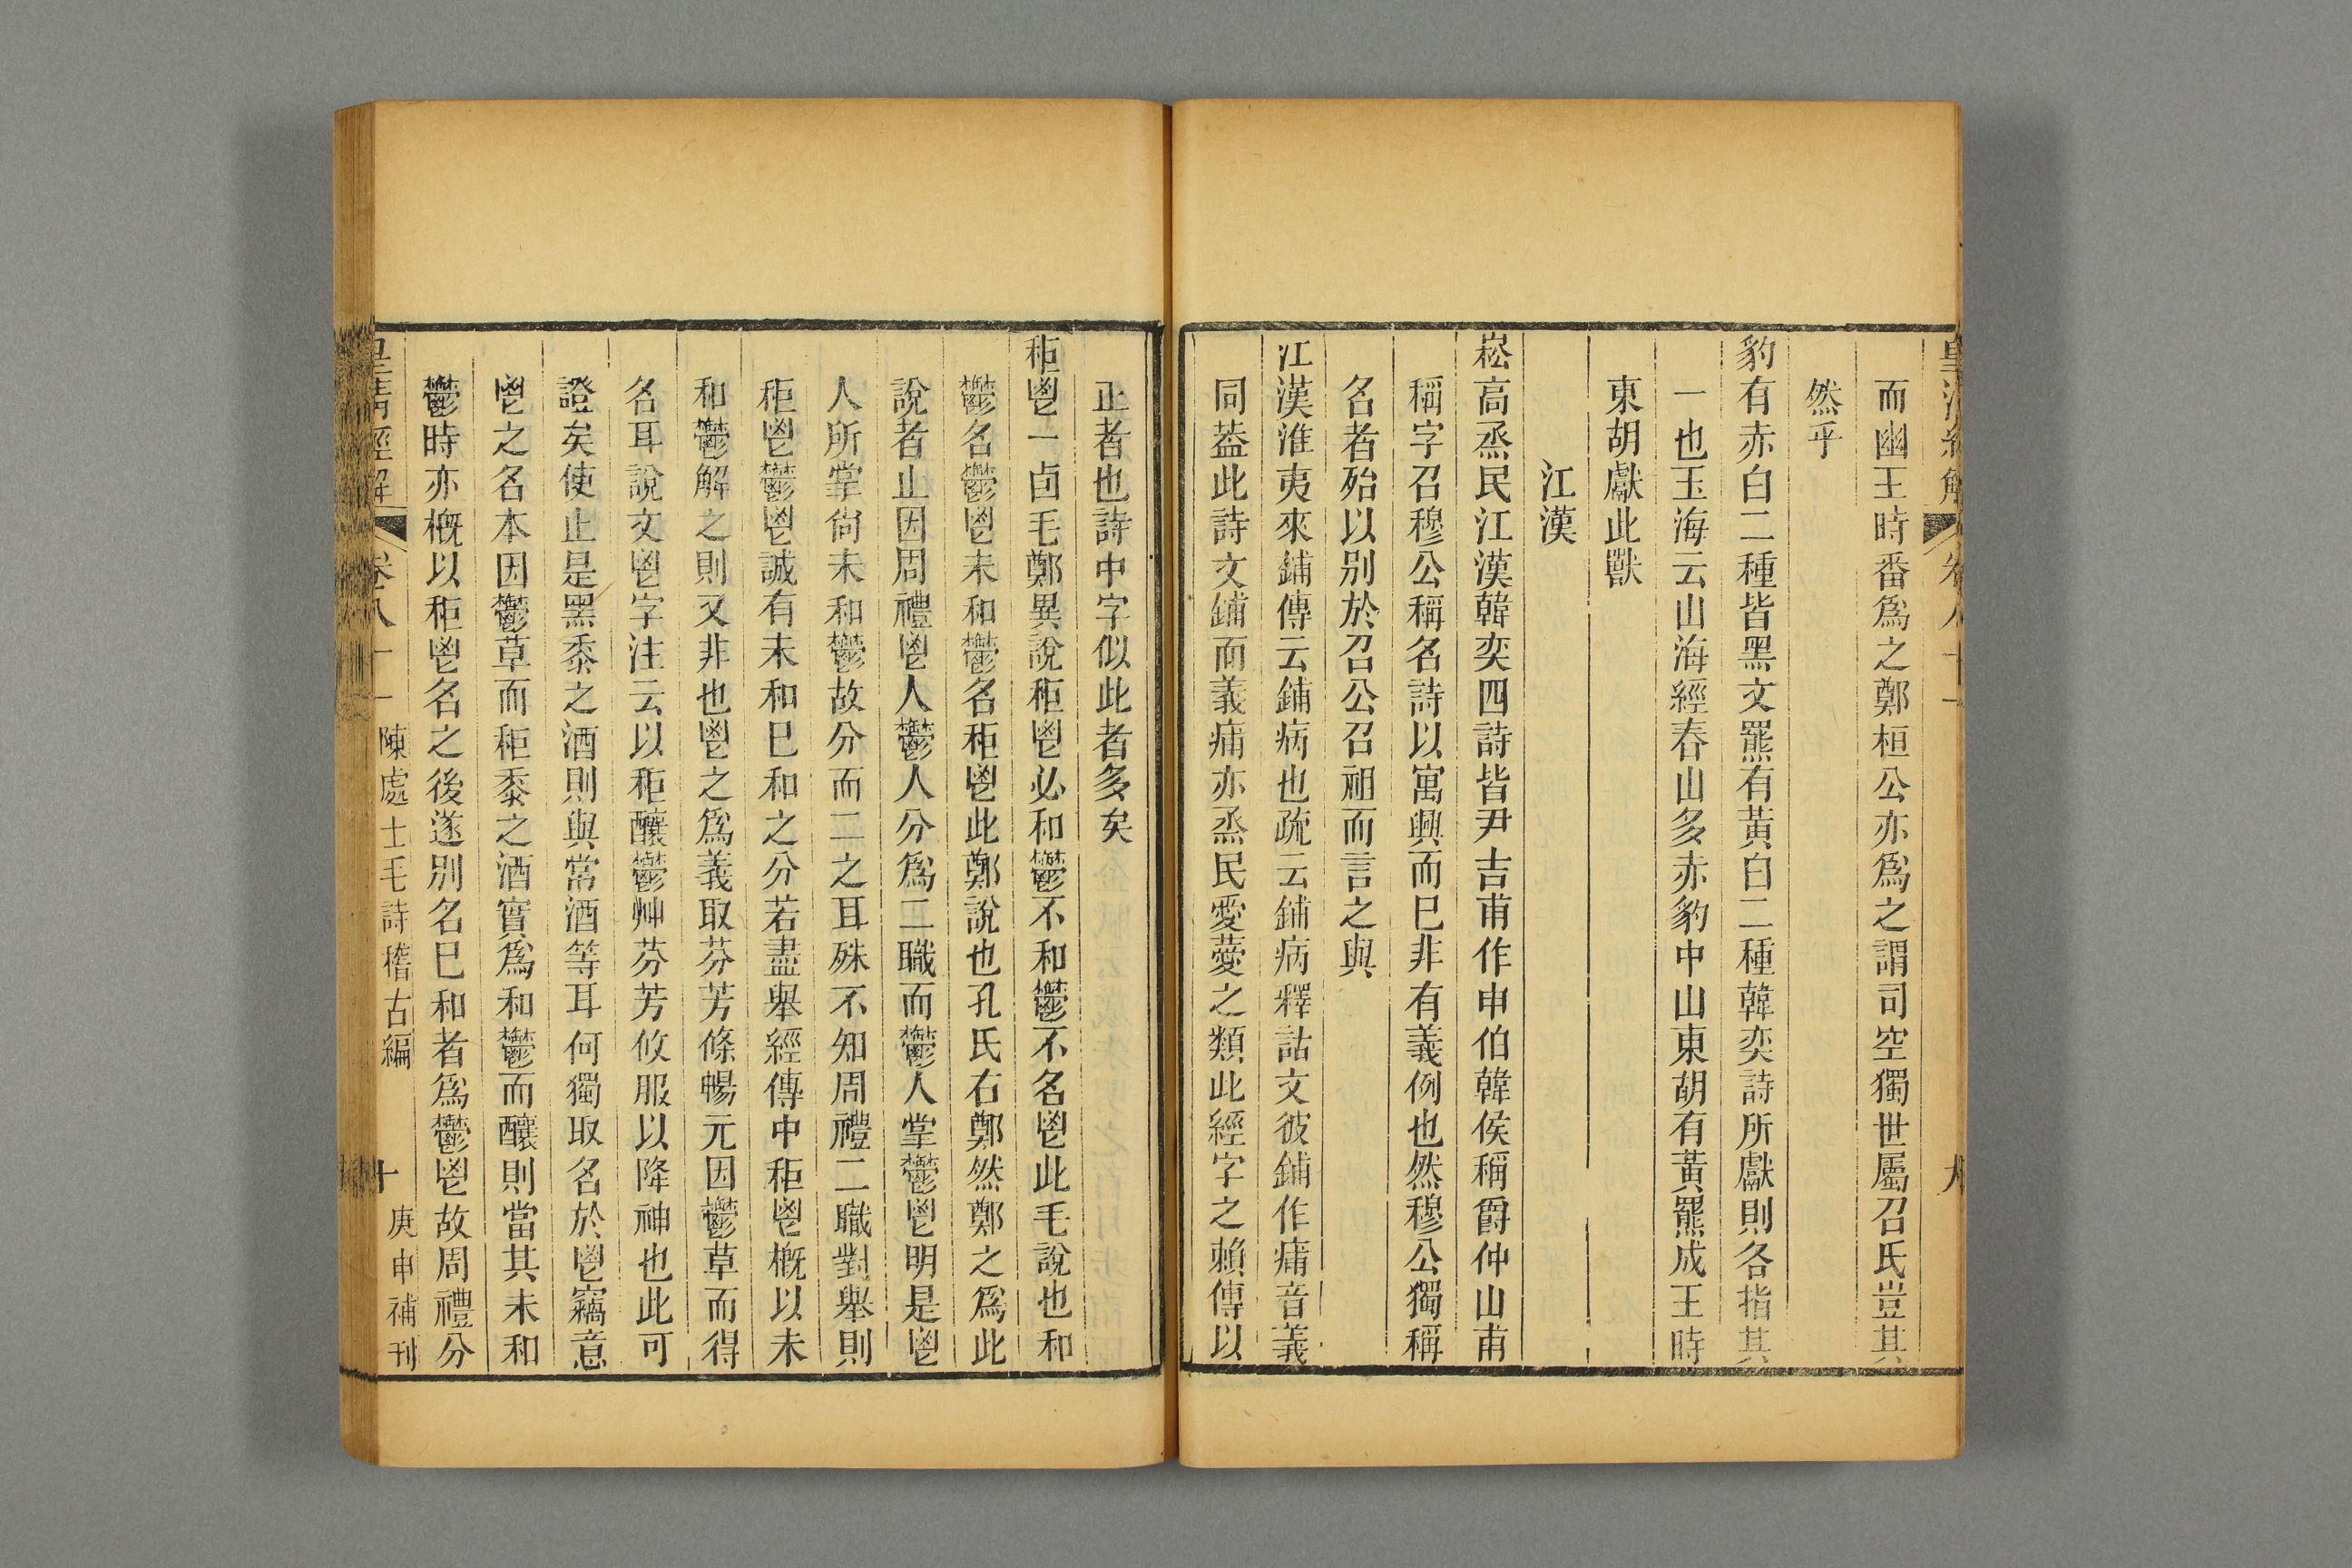 皇清經解 卷八十一 九
而幽王時番爲之鄭桓公亦爲之謂司空獨世屬召氏豈其
然乎
豹有赤白二種皆黑文羆有黃白二種韓奕詩所獻則各指其
一也玉海云山海經春山多赤豹中山東胡有黃羆成王時
東胡獻此獸
江漢
崧高烝民江漢韓奕四詩皆尹吉甫作申伯韓侯稱爵仲山甫
稱字召穆公稱名詩以寓興而巳非有義例也然穆公獨稱
名者殆以别於召公召祖而言之與
江漢淮夷來鋪傳云鋪病也疏云鋪病釋詁文彼鋪作痡音義
同葢此詩文鋪而義痡亦烝民愛薆之類此經字之賴傳以
正者也詩中字似此者多矣
秬鬯一卣毛鄭異說秬鬯必和鬱不和鬱不名鬯此毛說也和
鬱名鬱鬯未和鬱名秬鬯此鄭說也孔氏右鄭然鄭之爲此
說者止因周禮鬯人鬱人分爲二職而鬱人掌鬱鬯明是鬯
人所掌尙未和鬱故分而二之耳殊不知周禮二職對舉則
秬鬯鬱鬯誠有未和巳和之分若盡舉經傳中秬鬯概以未
和鬱解之則又非也鬯之爲義取芬芳條暢元因鬱草而得
名耳說文鬯字注云以秬釀鬱艸芬芳攸服以降神也此可
證矣使止是黑黍之酒則與常酒等耳何獨取名於鬯竊意
鬯之名本因鬱草而秬黍之酒實爲和鬱而釀則當其未和
鬱時亦概以秬鬯名之後遂别名巳和者爲鬱鬯故周禮分
皇清經解 卷八十一 陳處士毛詩稽古編 十 庚申補刊